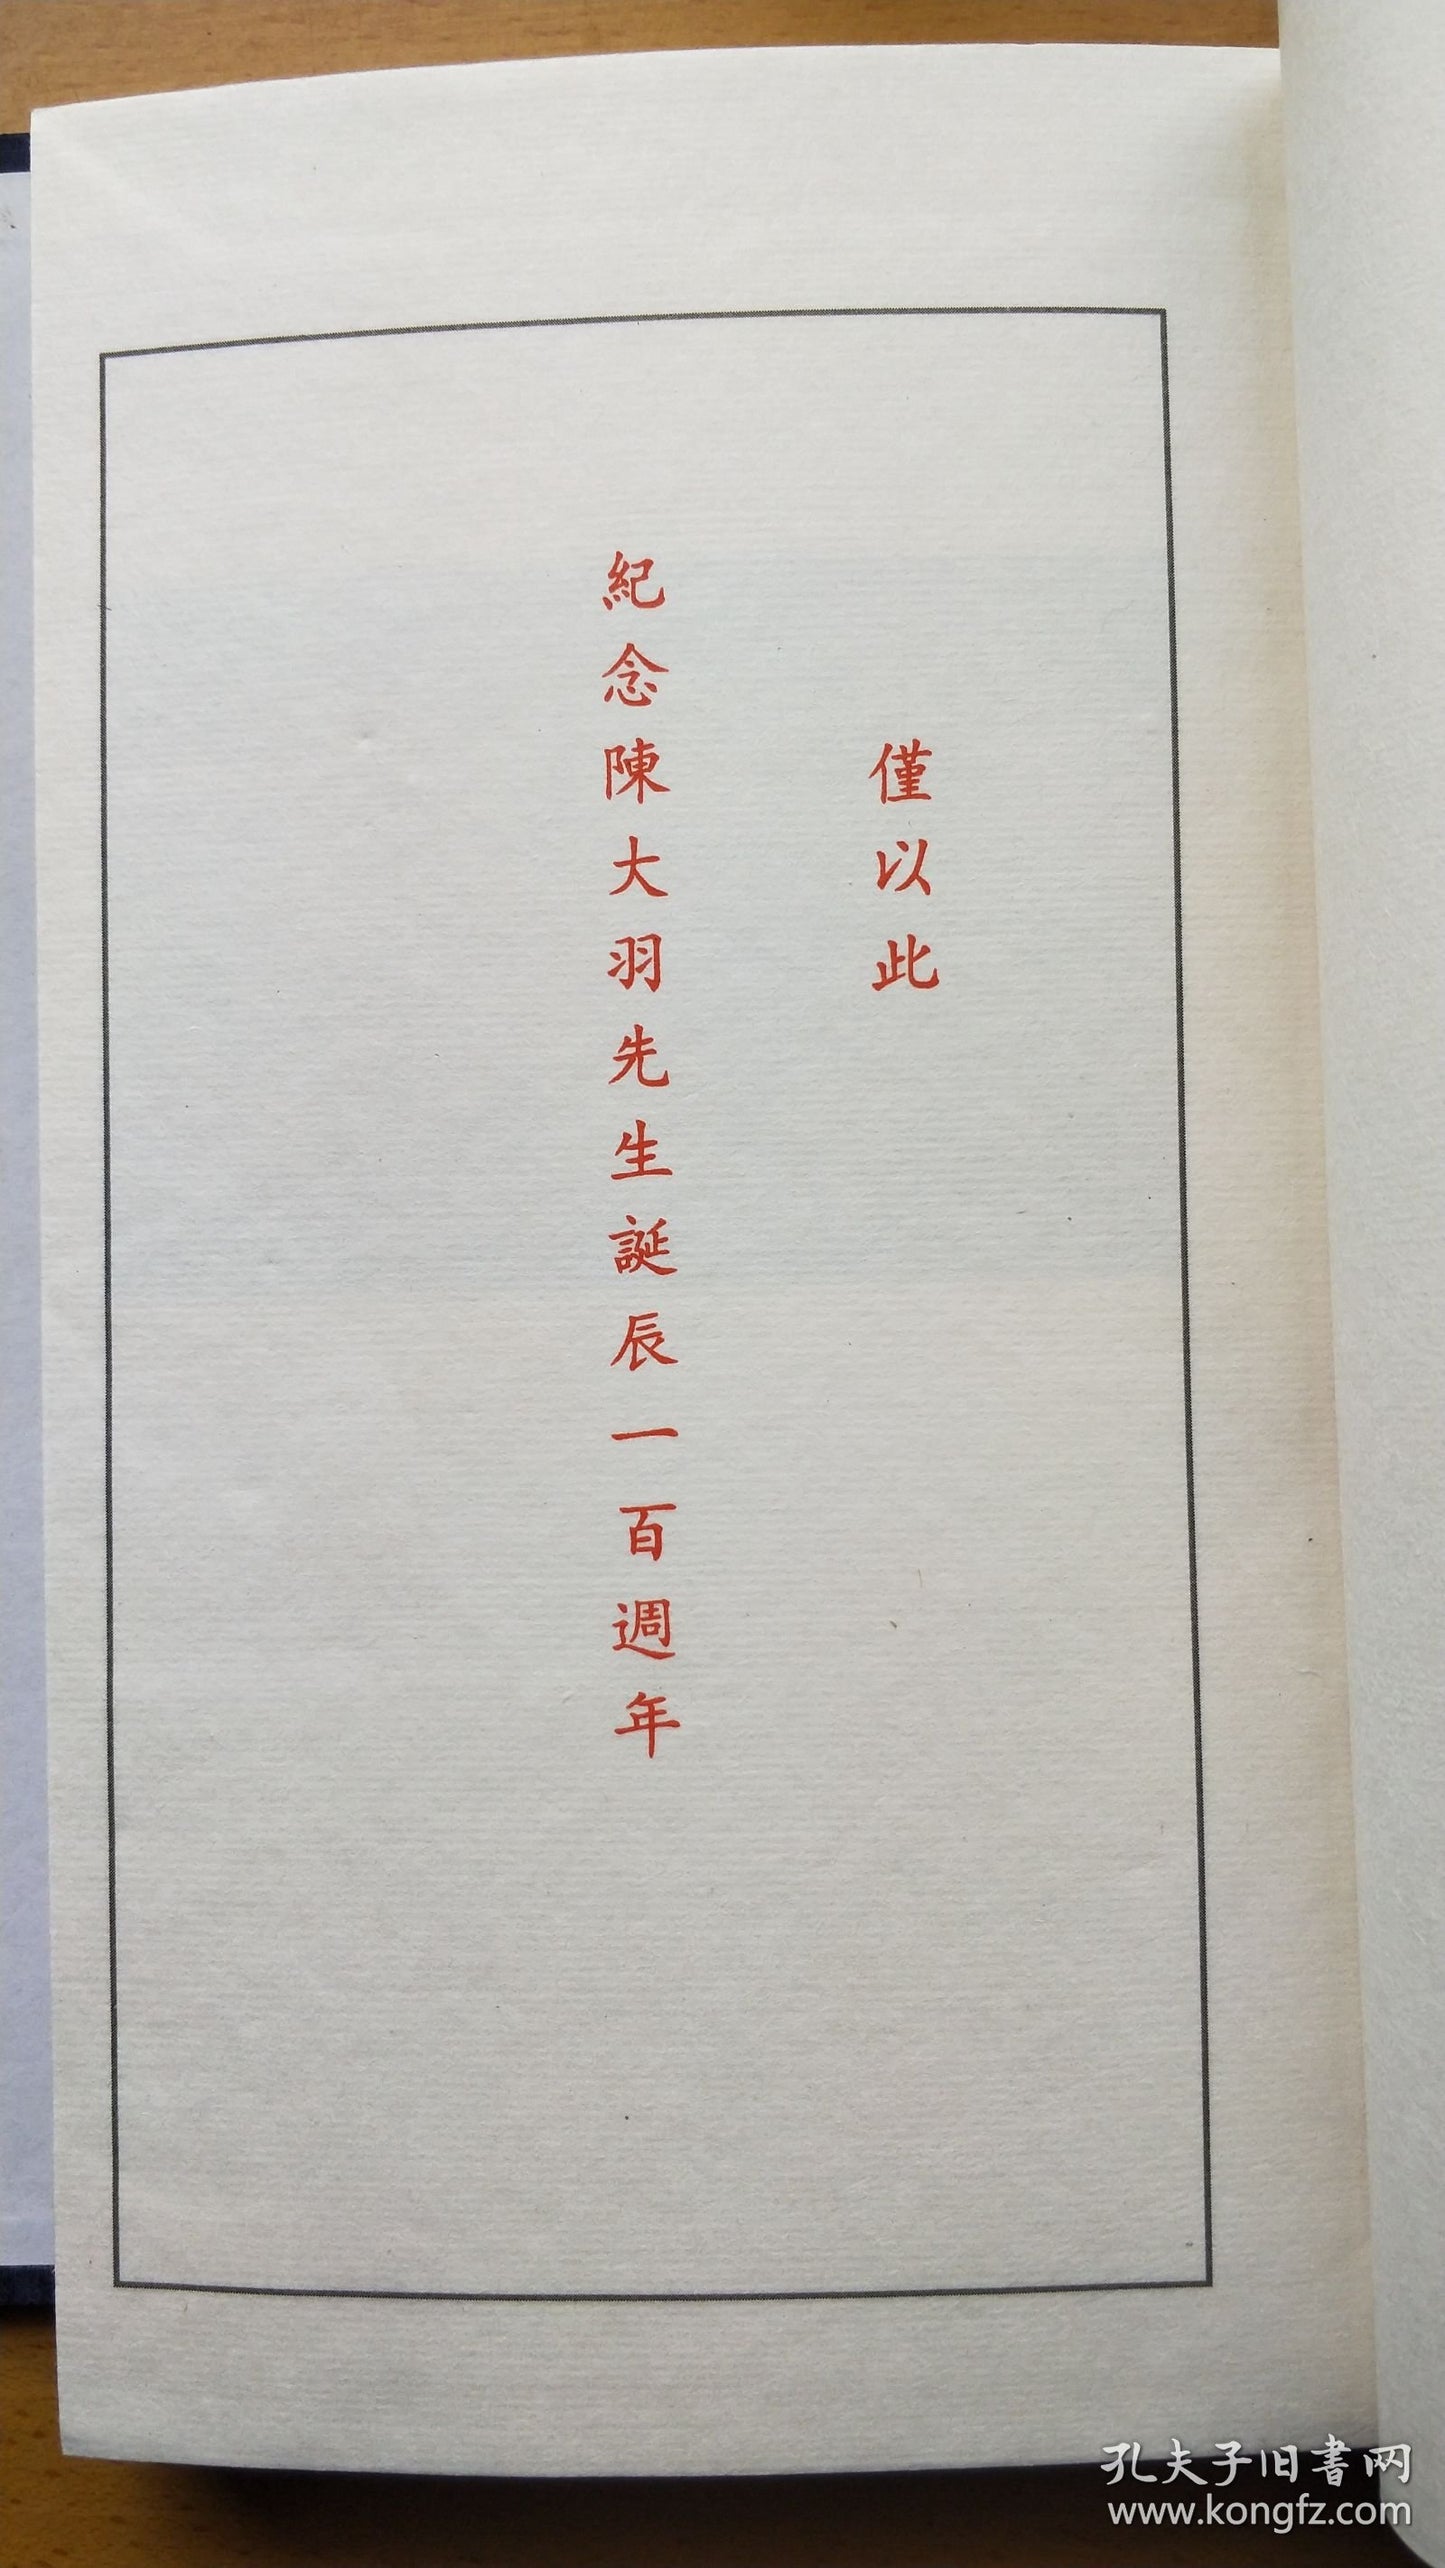 僅以此
紀念陳大羽先生誕辰一百週年
孔夫子旧書网
www.kongfz.com